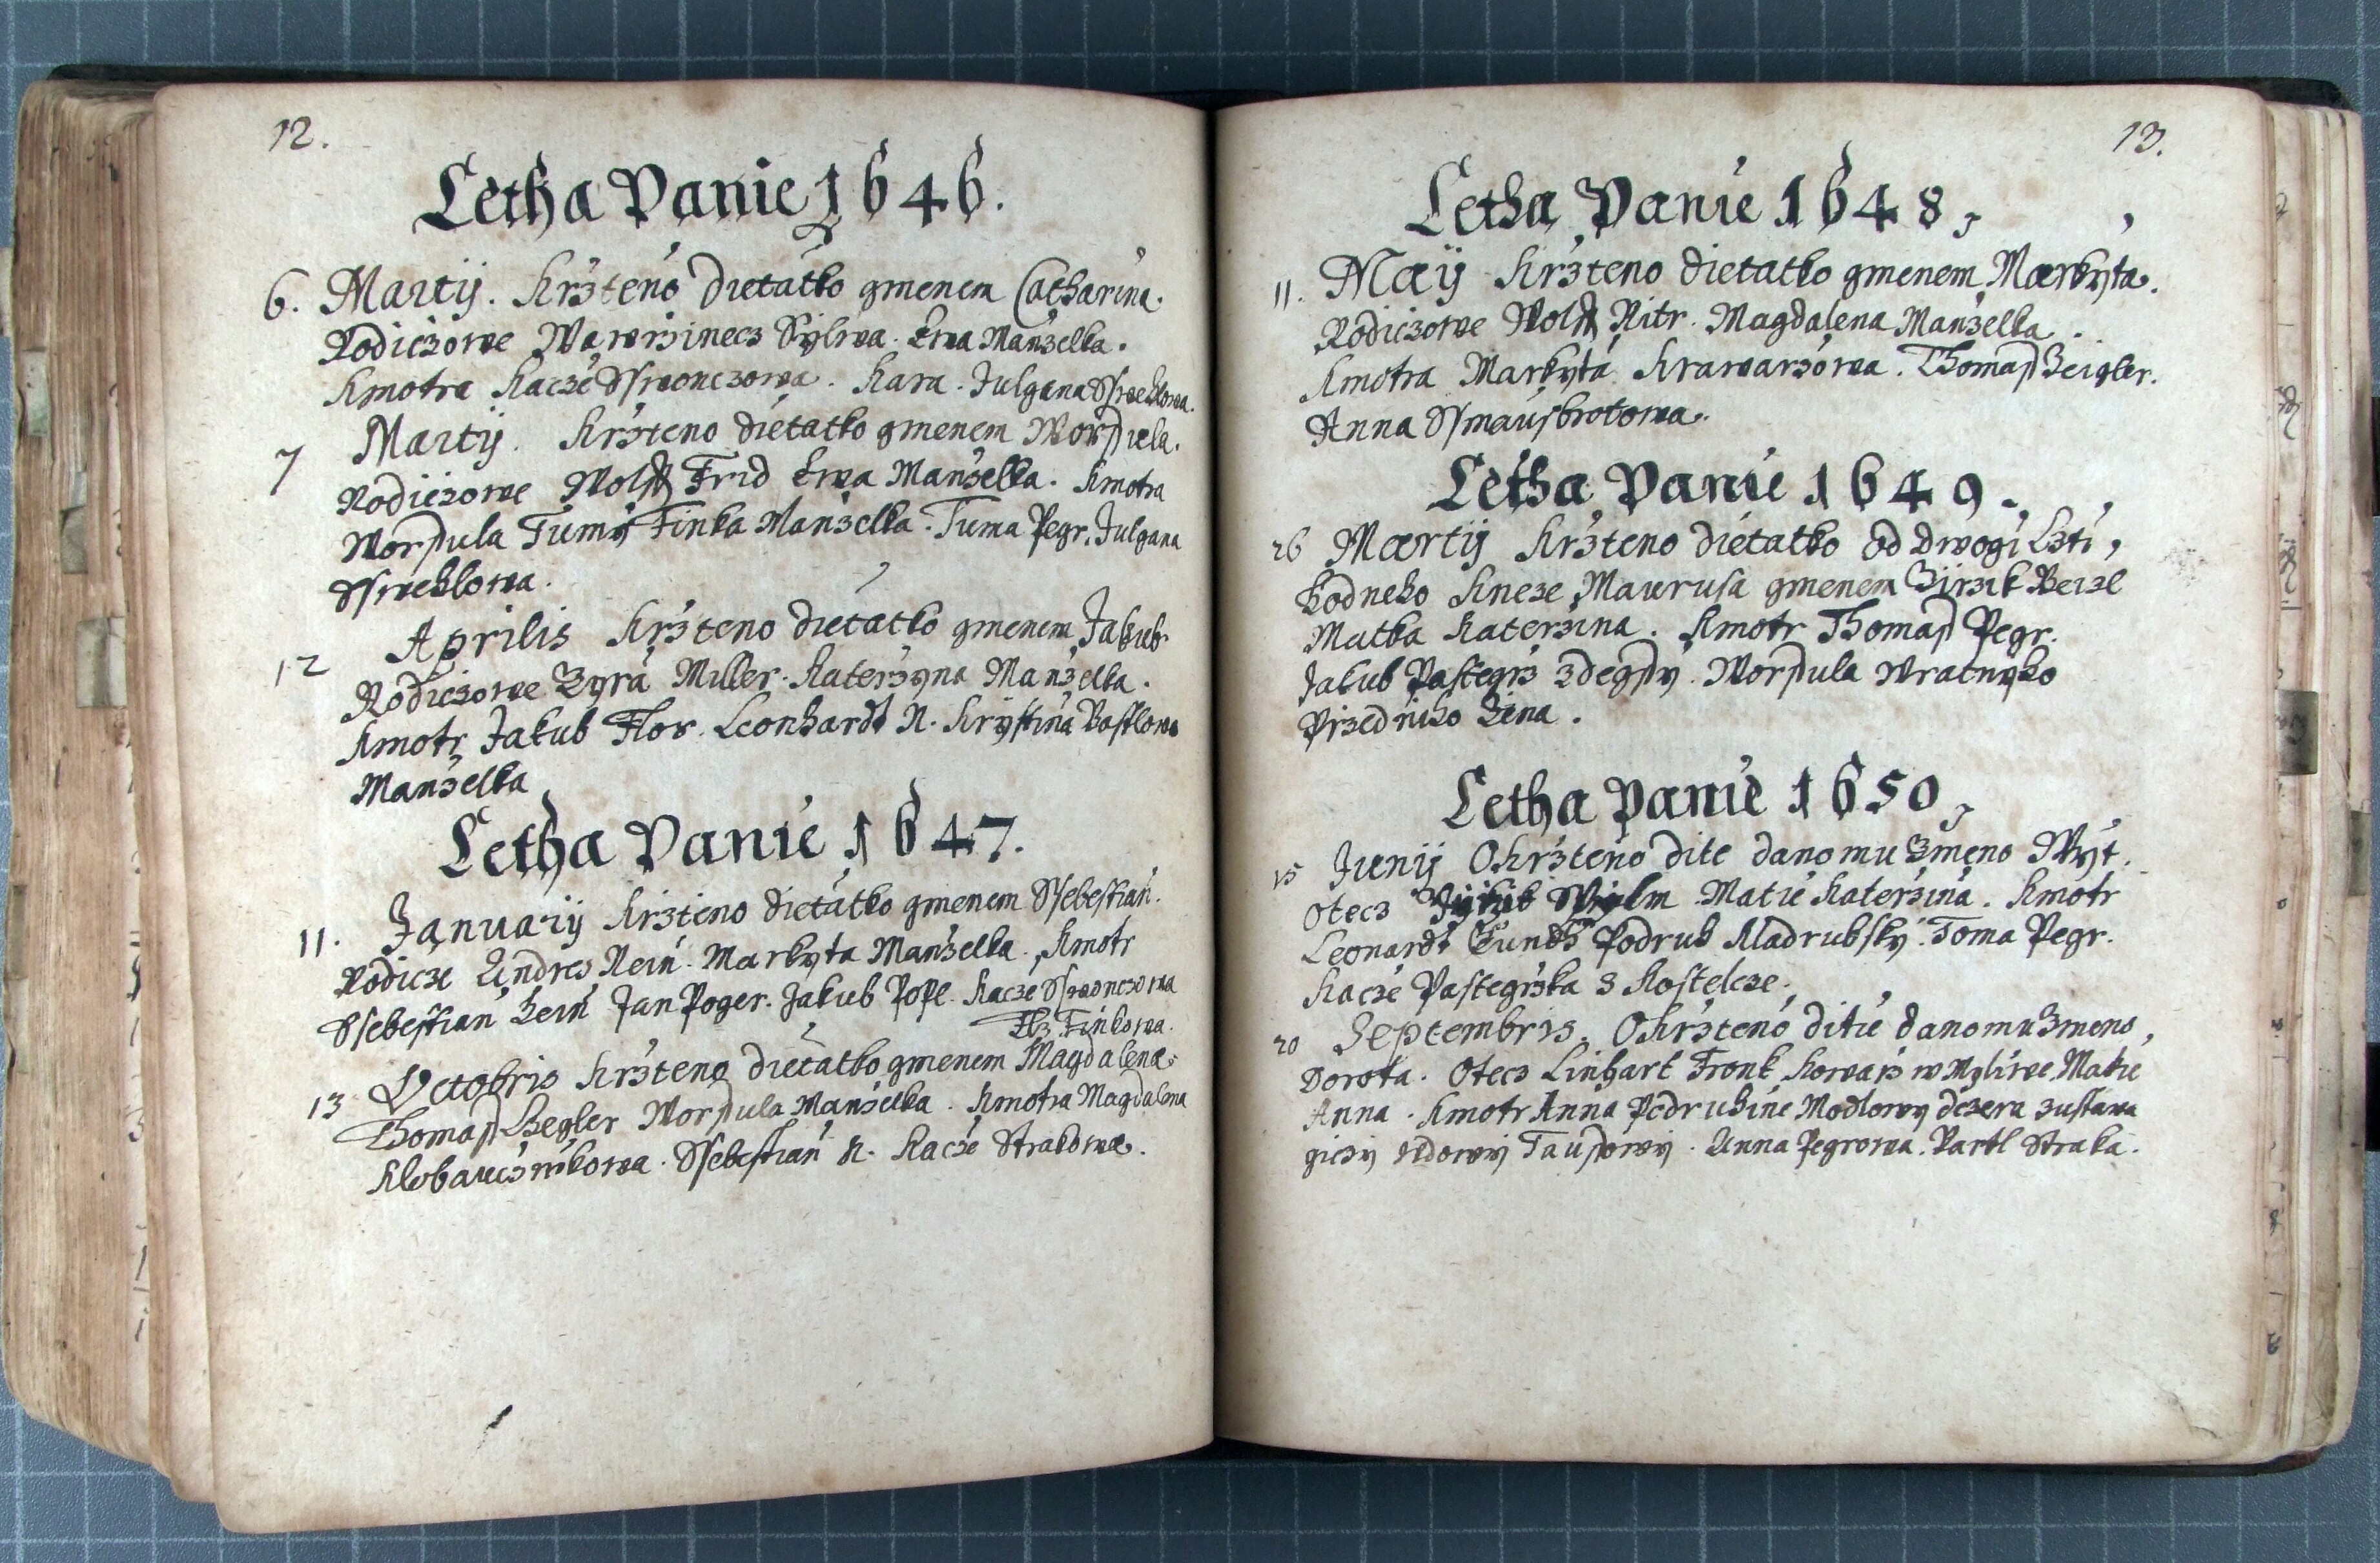 12.
Letha Panie 1646.
6. Martij. Krzteno dietatko gmenem Catharina.
Rodiczowe Wawrzinecz Sylwa. Ewa Manzelka.
Kmotra Kacze Sswonczowa. Kara. Julgana Sswehlowa.
7 Martij. Krzteno dietatko gmenem Worssula.
Rodiczowe Wolff Frid Ewa Manzelka. Kmotra
Worssula Tumy Finka Manzelka. Tuma Pegr. Julgana
Sswehlowa.
12 Aprilis Krzteno dietatko gmenem Jakub
Rodiczowe Zyra Miller. Katerzyna Manzelka.
Kmotr Jakub Flor. Leonhardt N. Krystina Bastlowa
Manzelka
Letha Panie 1647.
11. Januarij Krzteno dietatko gmenem Ssebestian.
Rodicze Andres Rein. Markyta Manzelka. Kmotr
Ssebestian Zein Jan Poger. Jakub Popl. Kacze Sswonczowa
Finkowa.
13 Octobris Krzteno dietatko gmenem Magdalena.
Thomass Worssula Manzelka. Kmotra Magdalena
Klobaucznikowa. Ssebestian N. Kacze Strakowa.
13.
Letha Panie 1648,
11. Maij Krzteno dietatko gmenem Markyta.
Rodiczowe Wolff Ritr. Magdalena Manzelka.
Kmotra Markyta Krawarzowa. Thomass Zeigler.
Anna Ssmausbrotowa.
Letha Panie 1649.
26 Martij Krzteno dietatko od dwogi Czti,
hodneho Kneze Maurusa gmenem Zirzik Beizl
Matka Katerzina. Kmotr Thomass Pegr.
Jakub Pastegrz zdegssy. Worssula Wratnyho
Przedniho Zena.
Letha Panie 1650,
15 Junij Okrzteno dite dano mu Zmeno Wyt.
otecz Wylm. Matie Katerzina. Kmotr
Leonardt Podrub Kladrubsky. Toma Pegr.
Kacze Pastegrzka z Kostelcze.
20 Septembris. Okrzteno ditie dano mu Zmeno,
Dorota. Otecz Linhart Fronk Kowarz w Mgliwe Matie
Anna. Kmotr Anna Podruhine Modlowy dczera zustawa
giczy wdowy Taussowy. Anna Pegrowa. Partl Straka.